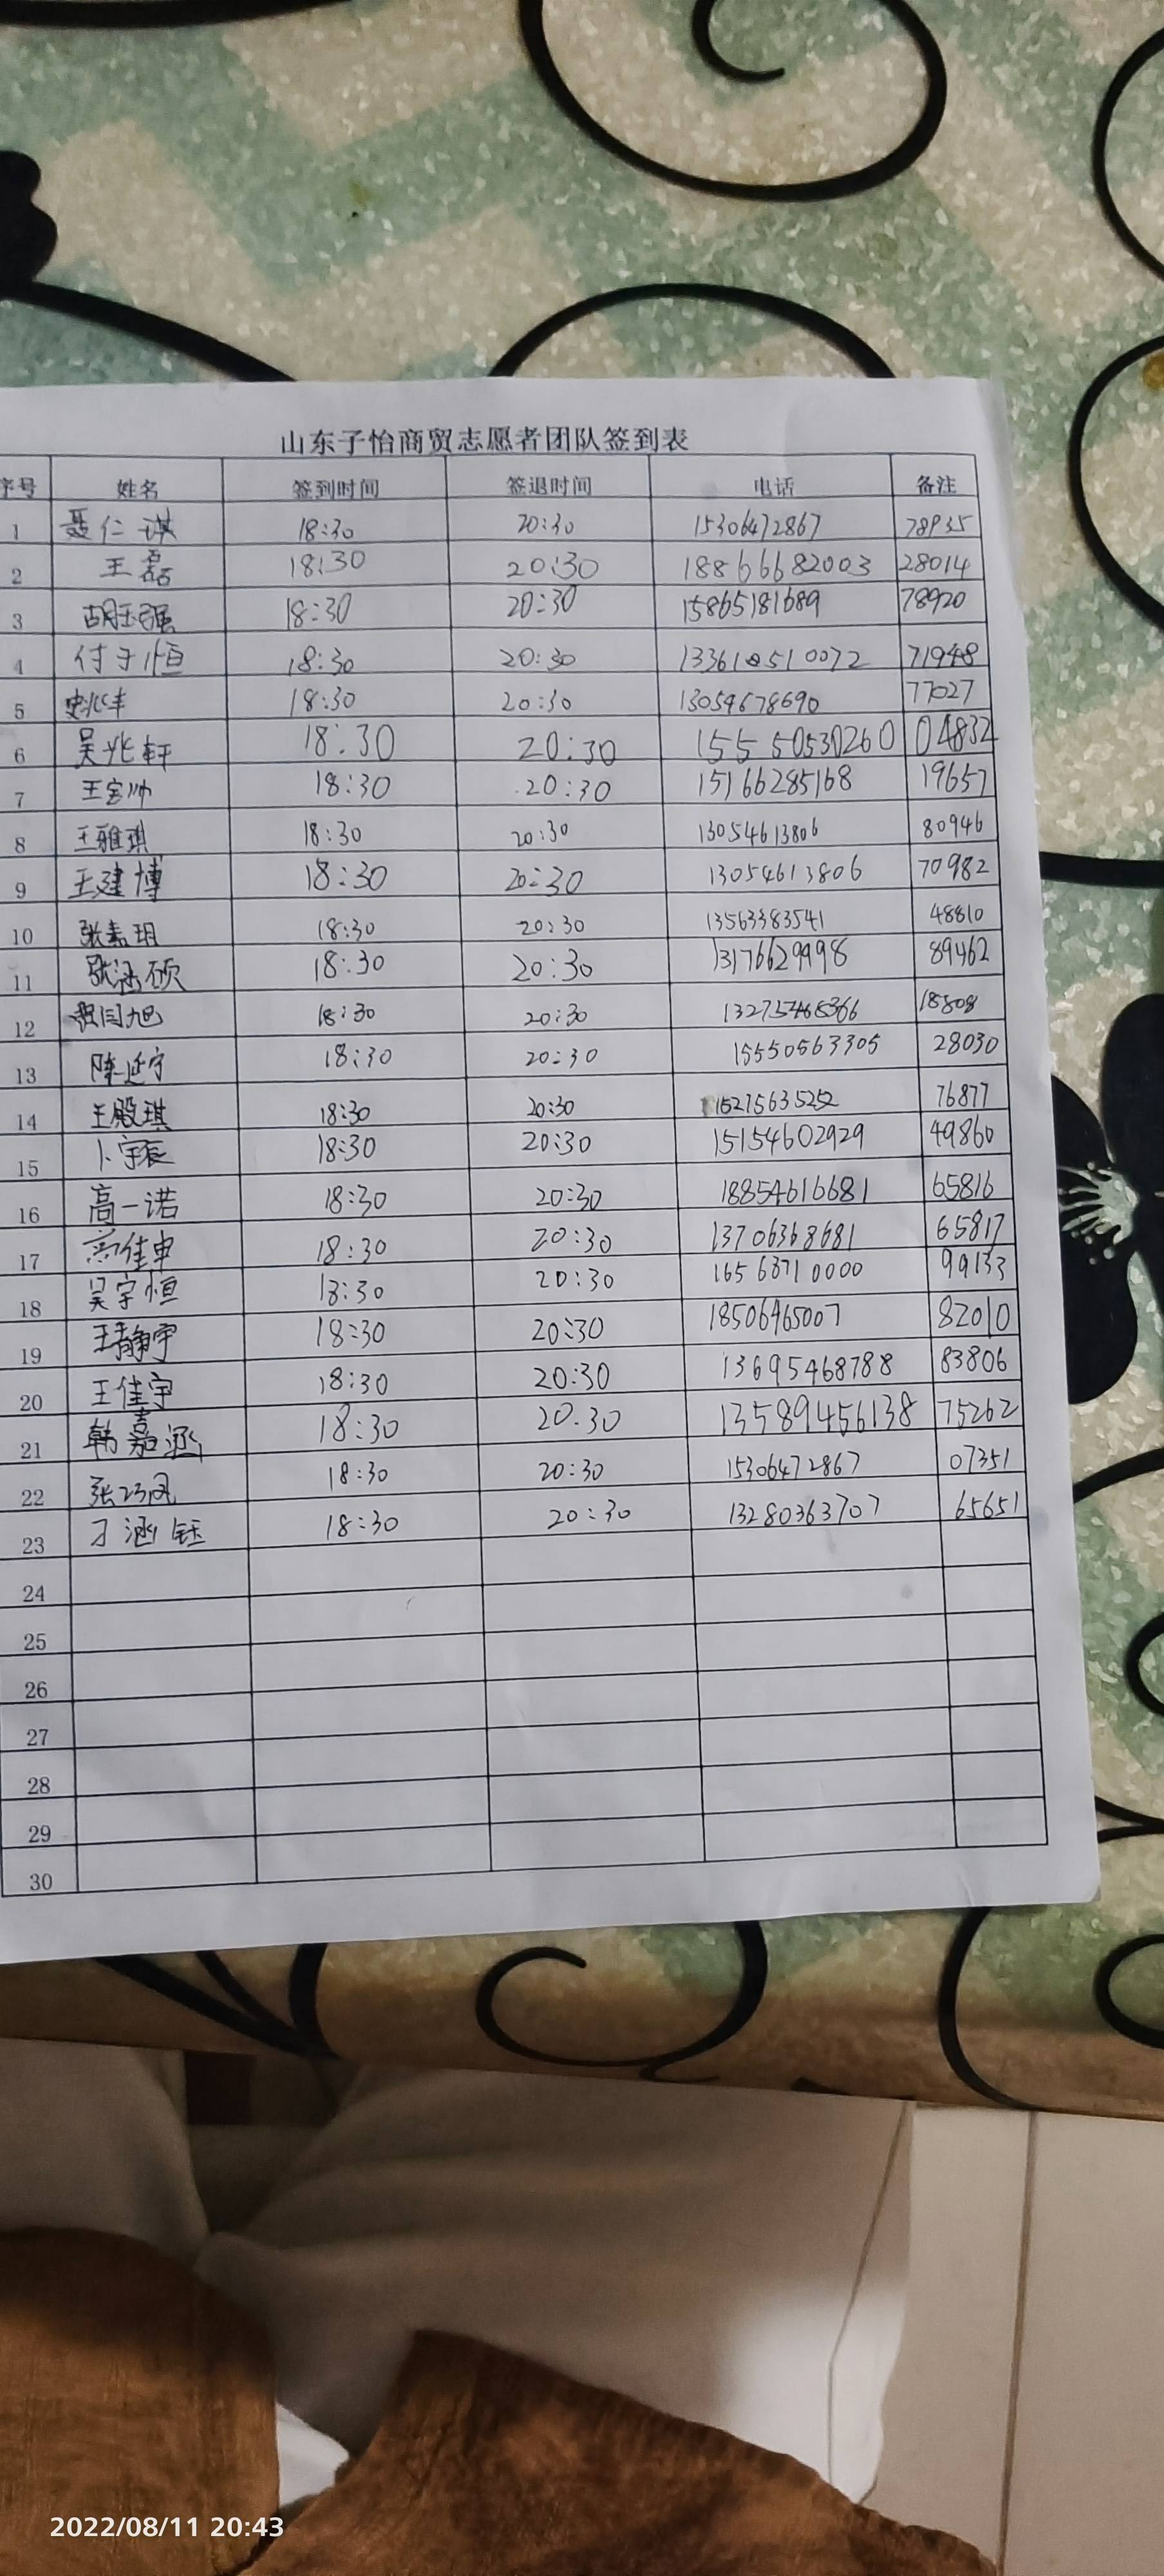 山东子怡商贸志愿者团队签到表
序号 姓名 签到时间 签退时间 电话 备注
1 聂仁琪 18:30 20:30 15306472867 78935
2 王磊 18:30 20:30 18866682003 28014
3 胡玉强 18:30 20:30 15865181689 78920
4 付于恒 18:30 20:30 71948
5 史兆丰 18:30 20:30 13054678690 77027
6 吴兆轩 18:30 20:30 15550530260 04832
7 王宝帅 18:30 20:30 15166285168 19657
8 王雅琪 18:30 20:30 13054613806 80946
9 王建博 18:30 20:30 13054613806 70982
10 张嘉玥 18:30 20:30 13563383541 48810
11 张涵硕 18:30 20:30 13176629998 89462
12 18:30 20:30 18808
13 陈延宁 18:30 20:30 15550563305 28030
14 王殿琪 18:30 20:30 15275635252 76877
15 卜宇辰 18:30 20:30 15154602929 49860
16 高一诺 18:30 20:30 18854616681 65816
17 高佳申 18:30 20:30 13706368681 65817
18 吴宇恒 18:30 20:30 16563710000 99133
19 王静宇 18:30 20:30 18506465007 82010
20 王佳宇 18:30 20:30 13695468788 83806
21 韩嘉涵 18:30 20:30 13589456138 75262
22 张巧凤 18:30 20:30 15306472867 07351
23 刁涵钰 18:30 20:30 13280363707 65651
24
25
26
27
28
29
30
2022/08/11 20:43